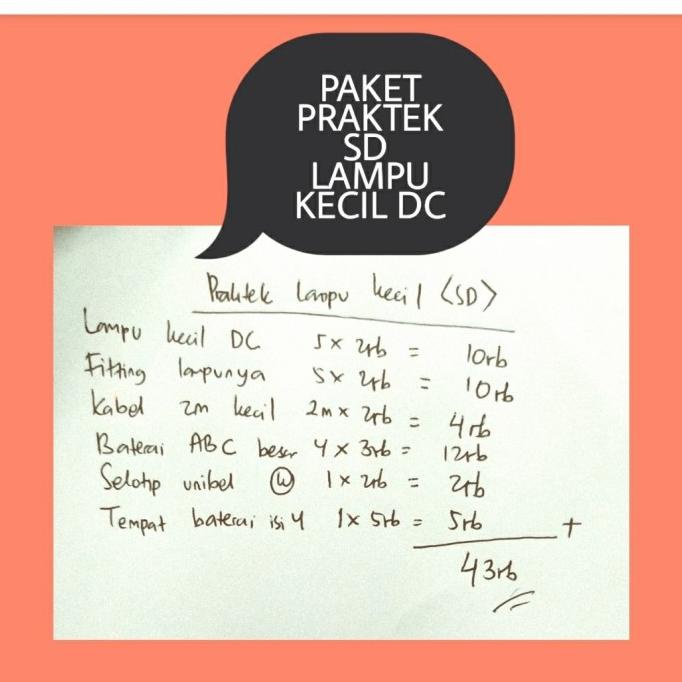 PAKET
PRAKTEK
SD
LAMPU
KECIL DC
Praktek lampu kecil <SD>
Lampu kecil DC 5 x 2rb = 10rb
Fitting lampunya 5x 2rb = 10rb
Kabel 2m kecil 2m x 2rb = 4rb
Baterai ABC besar 4 x 3rb = 12rb
Selotip unibel W 1 x 2rb = 2rb
Tempat baterai isi 4 1x 5rb = 5rb +
43rb